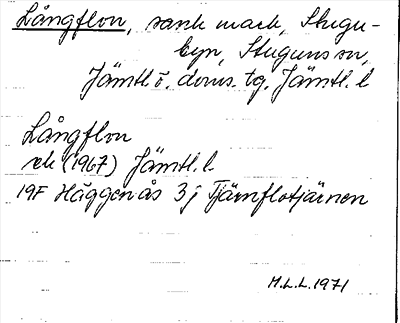 Långflon, sank mark, Stugu-
byn, Stuguns sn,
Jämtl. ö. doms. tg, Jämtl. l
Långflon
ek (1967) Jämtl. l.
19F Häggenås 3j Tjärnflotjärnen
M.L.L. 1971